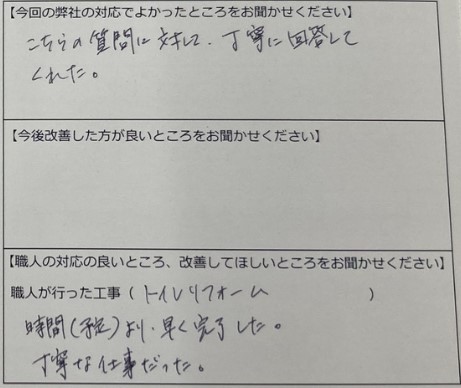 【今回の弊社の対応でよかったところをお聞かせください】
こちらの質問に対して、丁寧に回答して
くれた。
【今後改善した方が良いところをお聞かせください】
【職人の対応の良いところ、改善してほしいところをお聞かせください】
職人が行った工事（トイレリフォーム）
時間（予定）より、早く完了した。
丁寧な仕事だった。